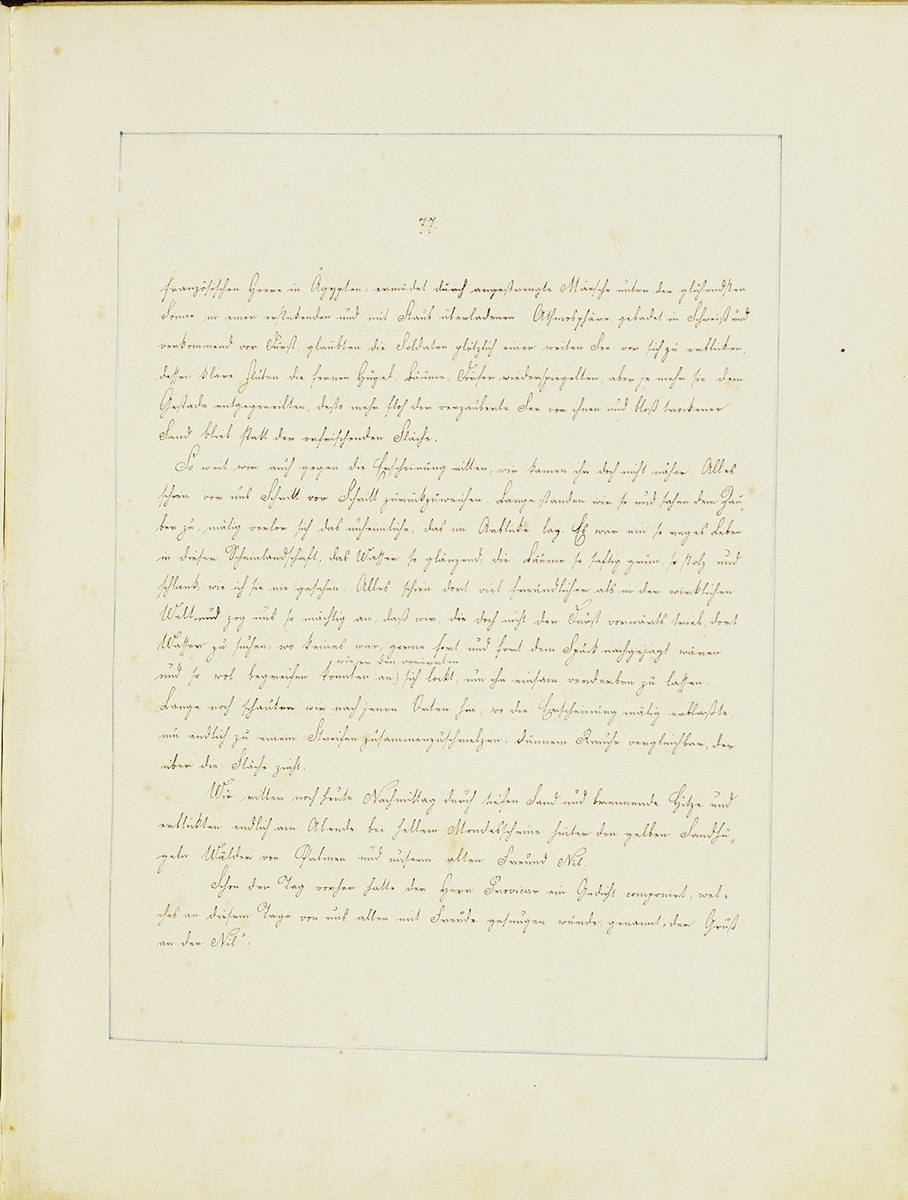 77.
französischen Heere in Ägypten: ermüdet durch angestrengte Märsche unter der glühendsten
Sonne, in einer erstickenden und mit Staub überladenen Athmosphäre, gebadet in Schweiß und
verkommend vor Durst, glaubten die Soldaten plötzlich einen weiten See vor sich zu erbliken,
dessen klare Fluten die fernen Hügel, Bäume, Dörfer wiederspiegelten, aber je mehr sie dem
Gestade entgegeneilten, desto mehr floh der verzauberte See vor ihnen und bloß trockener
Sand blieb statt der erfrischenden Fläche.
So weit wir auch gegen die Erscheinung ritten, wir kamen ihr doch nicht näher. Alles
schien vor uns Schritt vor Schritt zurückzuweichen. Lange standen wir so und sahen dem Zau„
ber zu, mälig verlor sich das unheimliche, das im Anblicke lag. Es war ein so reges Leben
in dieser Scheinlandschaft, das Wasser so glänzend, die Bäume so saftig grün, so stolz und
schlank, wie ich sie nie gesehen. Alles schien dort viel freundlicher als in der wirklichen
Welt und zog uns so mächtig an, daß wir, die doch nicht der Durst vorwärts trieb, dort
Wasser zu suchen, wo keines war, gerne fort und fort dem Spuck nachgejagt wären
wie er den verirrten
und so wol begreifen konnten an) sich lockt, um ihn einsam verderben zu lassen.
Lange noch schauten wir nach jenen Orten hin, wo die Erscheinung mälig erblaßte,
um endlich zu einem Streifen zusammenzuschmelzen, dünnem Rauche vergleichbar, der
über die Fläche zieht.
Wir ritten noch heute Nachmittag durch tiefen Sand und brennende Hitze und
erblikten endlich am Abende bei hellem Mondesscheine hinter den gelben Sandhü„
geln Wälder von Palmen und unsern alten Freund Nil.
Schon den Tag vorher hatte der Herr Provicar ein Gedicht componirt, wel„
ches an diesem Tage von uns allen mit Freude gesungen wurde, genannt „der Gruß
an den Nil“: